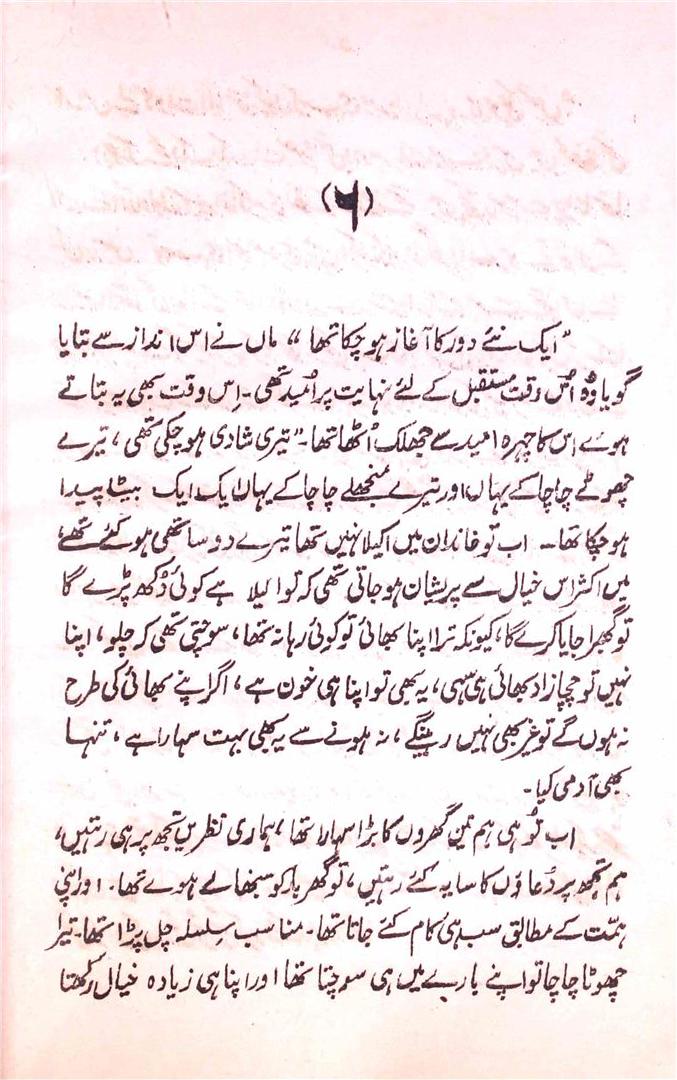 (۶)
”ایک نئے دور کا آغاز ہو چکا تھا“ ماں نے اس انداز سے بتایا
گویا وہ اُس وقت مستقبل کے لئے نہایت پر اُمید تھی۔ اِس وقت بھی یہ بتاتے
ہوے اس کا چہرہ امید سے جھلک اُٹھا تھا۔ ”تیری شادی ہو چکی تھی، تیرے
چھوٹے چاچا کے یہاں اور تیرے منجھلے چاچا کے یہاں ایک ایک بیٹا پیدا
ہو چکا تھا۔ اب تو خاندان میں اکیلا نہیں تھا تیرے دو ساتھی ہو گئے تھے،
میں اکثر اس خیال سے پریشان ہو جاتی تھی کہ تو اکیلا ہے کوئی دُکھ پڑے گا
تو گھبرا جایا کرے گا، کیونکہ ترا اپنا بھائی تو کوئی رہا نہ تھا، سوچتی تھی کہ چلو، اپنا
نہیں تو چچا زاد بھائی ہی سہی، یہ بھی تو اپنا ہی خون ہے، اگر اپنے بھائی کی طرح
نہ ہوں گے تو غیر بھی نہیں رہینگے، نہ ہونے سے یہ بھی بہت سہارا ہے، تنہا
بھی آدمی کیا۔
اب تُو ہی ہم تین گھروں کا بڑا سہارا تھا، ہماری نظریں تجھ پر ہی رہتیں،
ہم تجھ پر دُعاؤں کا سایہ کئے رہتیں، تو گھر بار کو سبنھالے ہوے تھا۔ اور اپنی
ہمّت کے مطابق سب ہی کام کئے جاتا تھا۔ مناسب سِلسلہ چل پڑا تھا۔ تیرا
چھوٹا چاچا تو اپنے بارے میں ہی سوچتا تھا اور اپنا ہی زیادہ خیال رکھتا